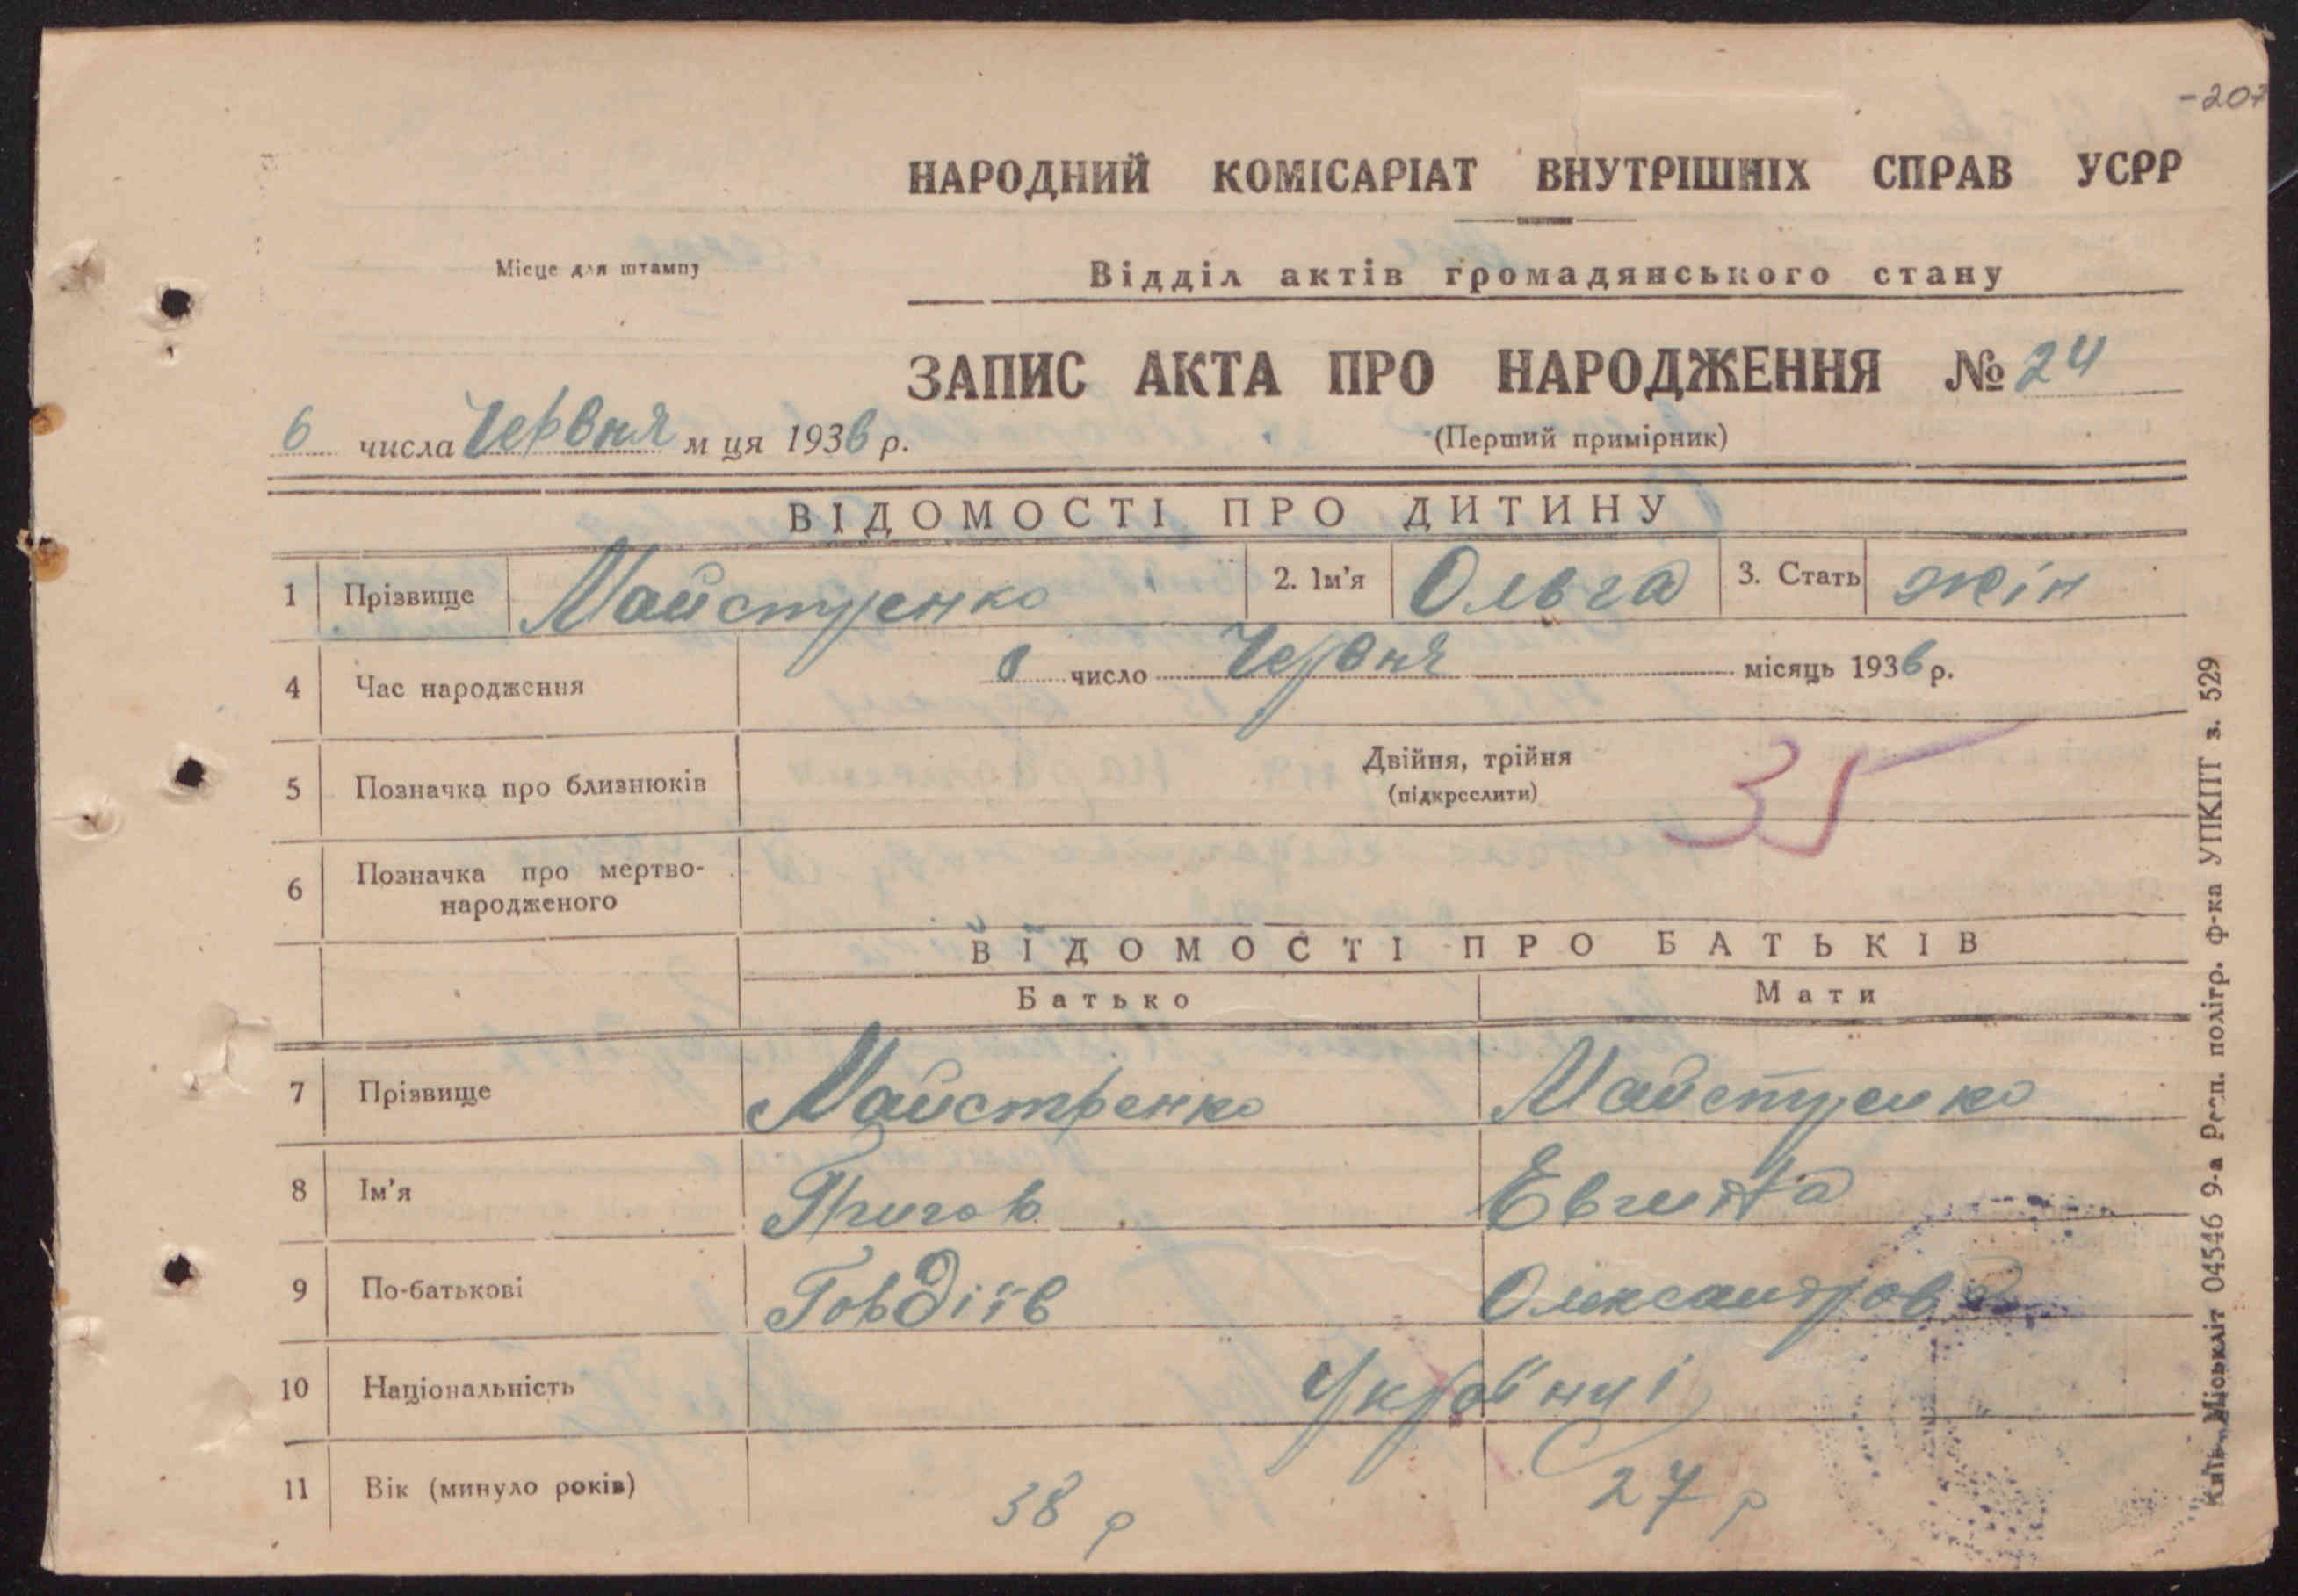 -207
НАРОДНИЙ КОМІСАРІАТ ВНУТРІШНІХ СПРАВ УСРР
Місце для штампу
Відділ актів громадянського стану
ЗАПИС АКТА ПРО НАРОДЖЕННЯ № 24
6 числа Червня м ця 1936 р.
(Перший примірник)
ВІДОМОСТІ ПРО ДИТИНУ
1 Прізвище Майстренко 2. Ім'я Ольга 3. Стать жін
4 Час народження число Червня місяць 1936 р.
5 Позначка про близнюків Двійня, трійня
(підкреслити)
35
6 Позначка про мертво-
народженого
ВІДОМОСТІ ПРО БАТЬКІВ
Батько Мати
7 Прізвище Майстренко Майстренко
8 Ім'я Григор Евгенія
9 По-батькові Говдіїв Олександров
10 Національність Українці
11 Вік (минуло років) 38 р 27 р
Київ. Міськліт 04546 9-а Респ. полігр. ф-ка УПКПТ з. 529